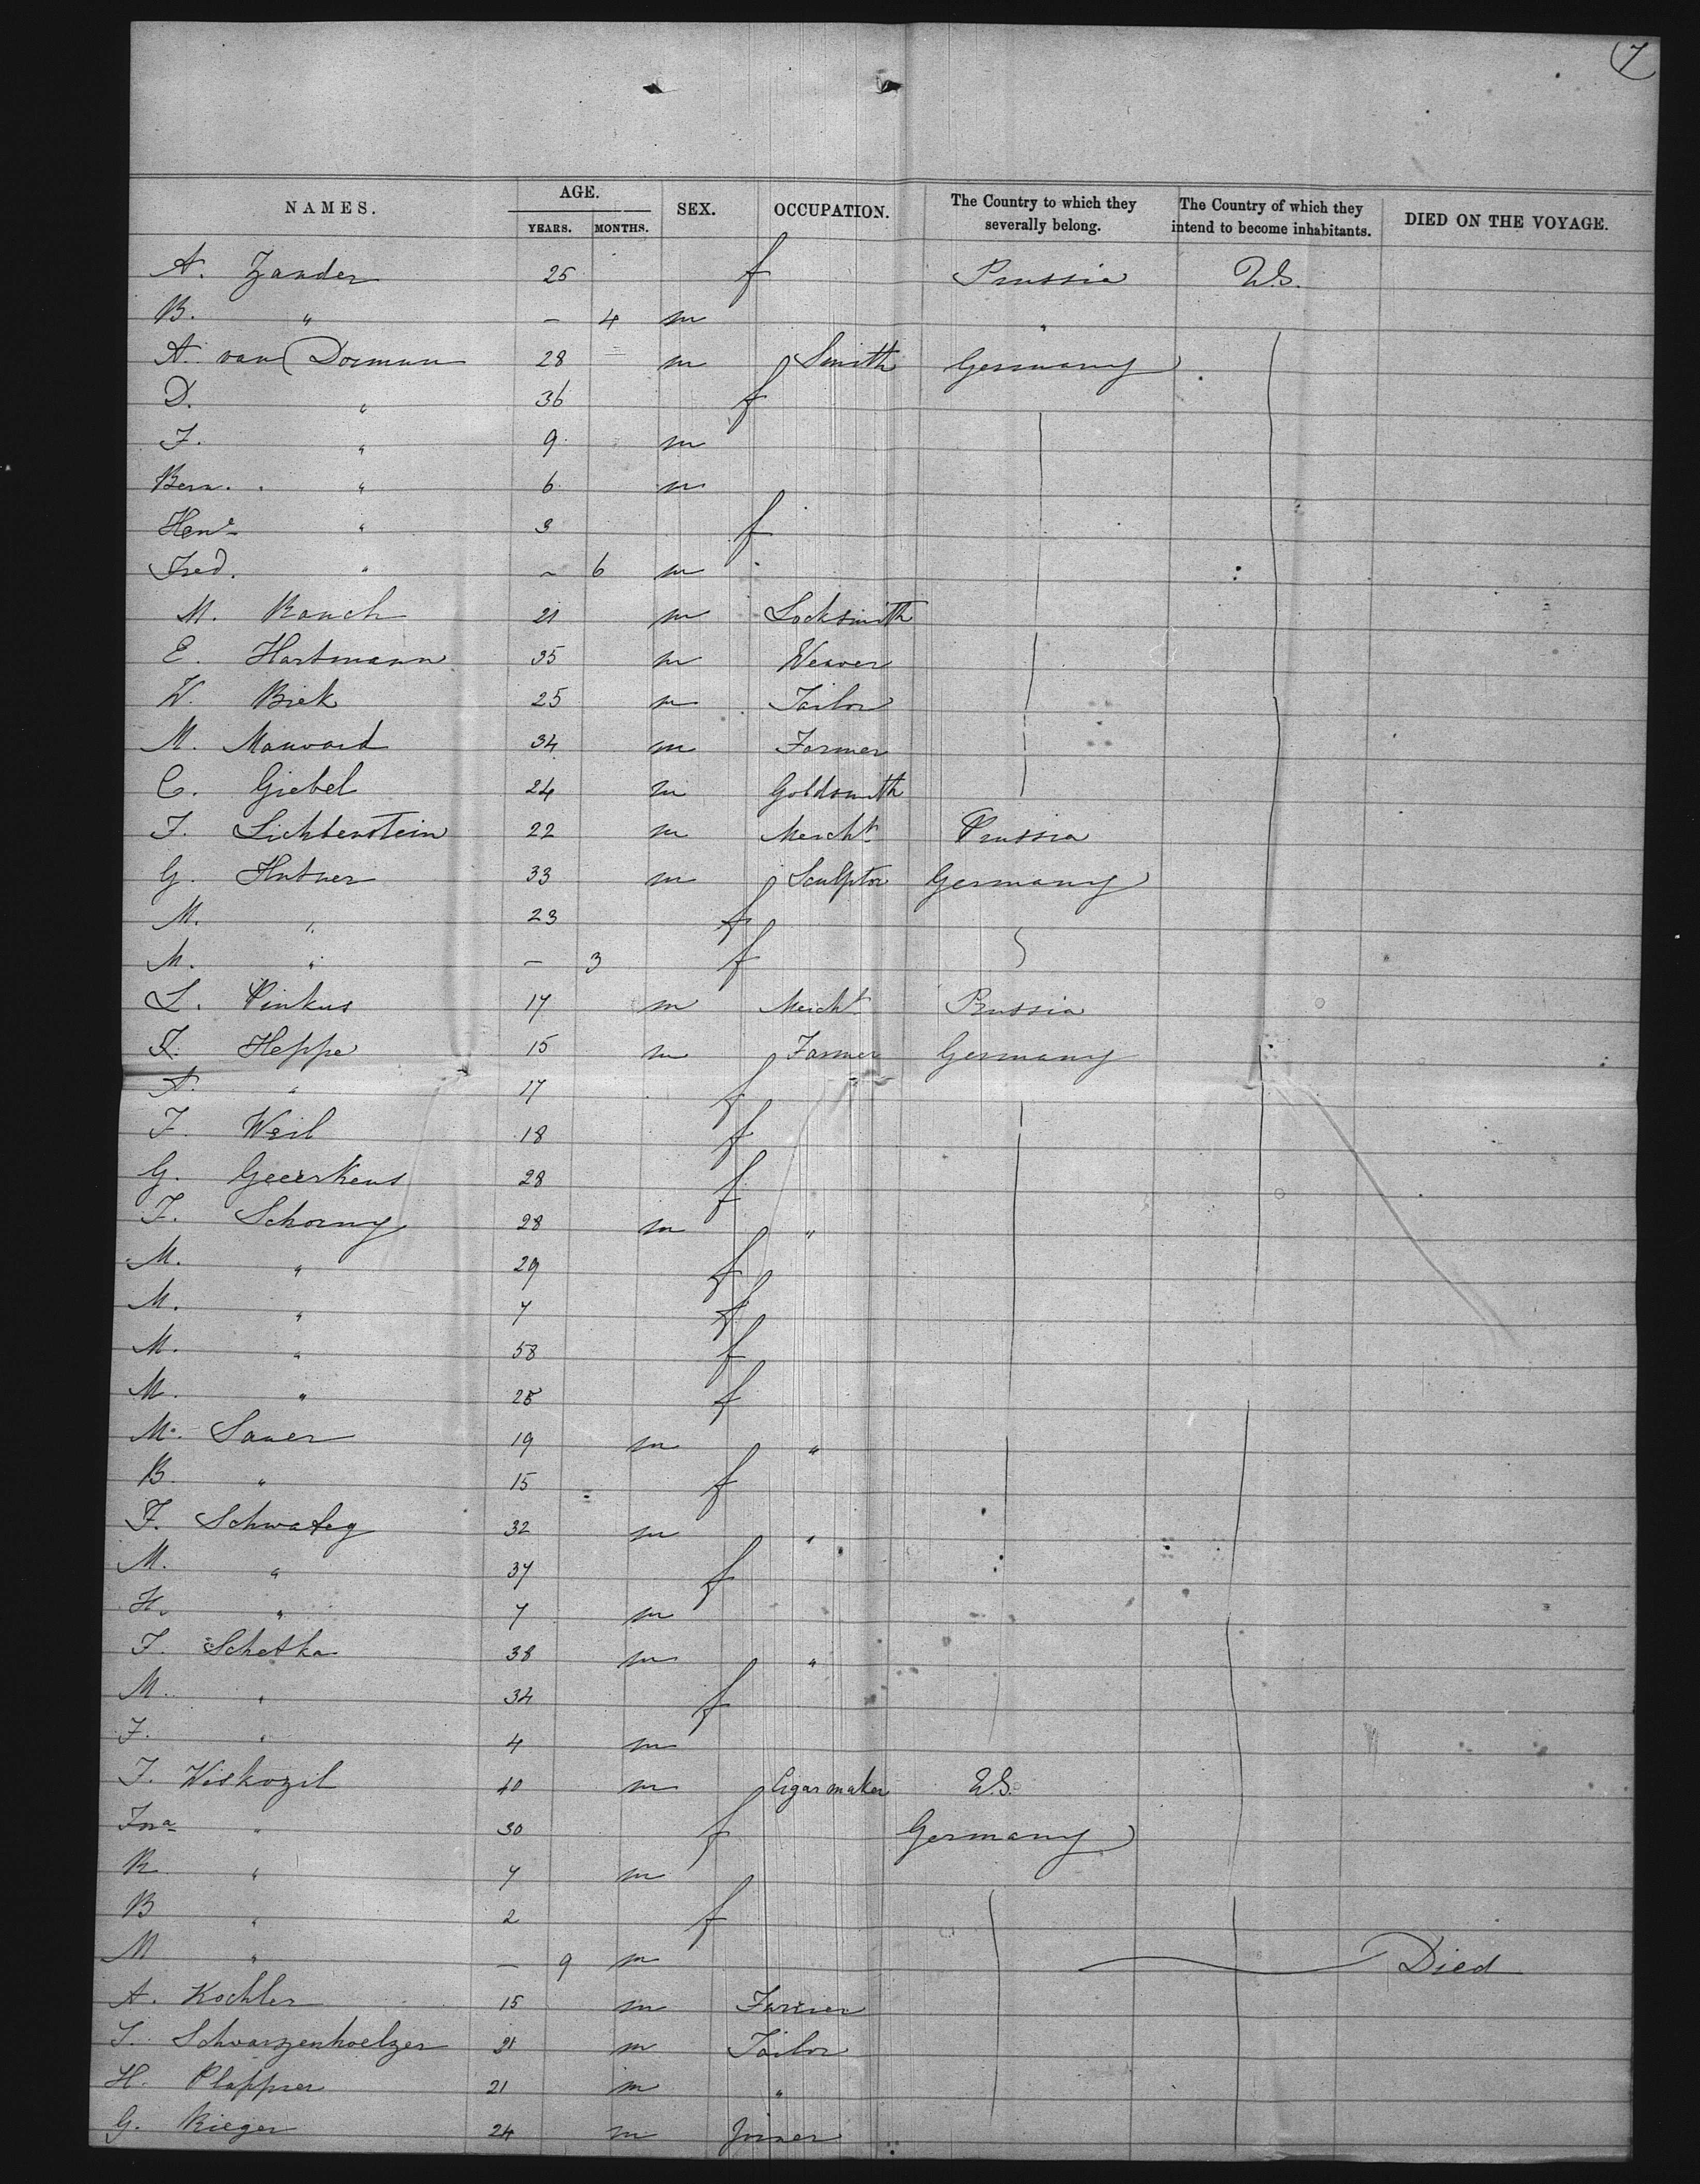 7
NAMES. AGE. YEARS. MONTHS. SEX. OCCUPATION. The Country to which they severally belong. The Country of which they intend to become inhabitants. DIED ON THE VOYAGE.
A. Zander 25 f Prussia U.S.
B. " – 4 m "
A. van Dorman 28 m Smith Germany
D. " 36 f
J. " 9 m
Bern. " 6 m
Henr " 3 f
Fred. " – 6 m
M. Rauch 21 m Locksmith
E. Hartmann 35 m Weaver
W. Biek 25 m Tailor
M. 34 m Farmer
C. Giebel 24 m Goldsmith
J. Lichtenstein 22 m Mercht Prussia
G. Hutner 33 m Sculptor Germany
M. " 23 f
M. " – 3 f
L. Pinkus 17 m Mercht Prussia
F. Heppe 15 m Farmer Germany
A. " 17 f
J. Weil 18 f
G. Geerkens 28 f
J. Schorny 28 m "
M. " 29 f
M. " 7 f
M. " 58 f
M. " 25 f
M. Sauer 19 m "
B. " 15 f
F. 32 m "
M. " 37 f
H. " 7 m
J. Schetka 38 m "
M. " 34 f
J. " 4 m
J. Wiskozil 40 m Cigarmaker U.S.
" 30 f Germany
R " 7 m
B " 2 f
M " – 9 m Died
A. Kochler 15 m Farmer
J. Schwarzenhoelzer 21 m Tailor
H. Plappner 21 m "
G. Rieger 24 m Joiner